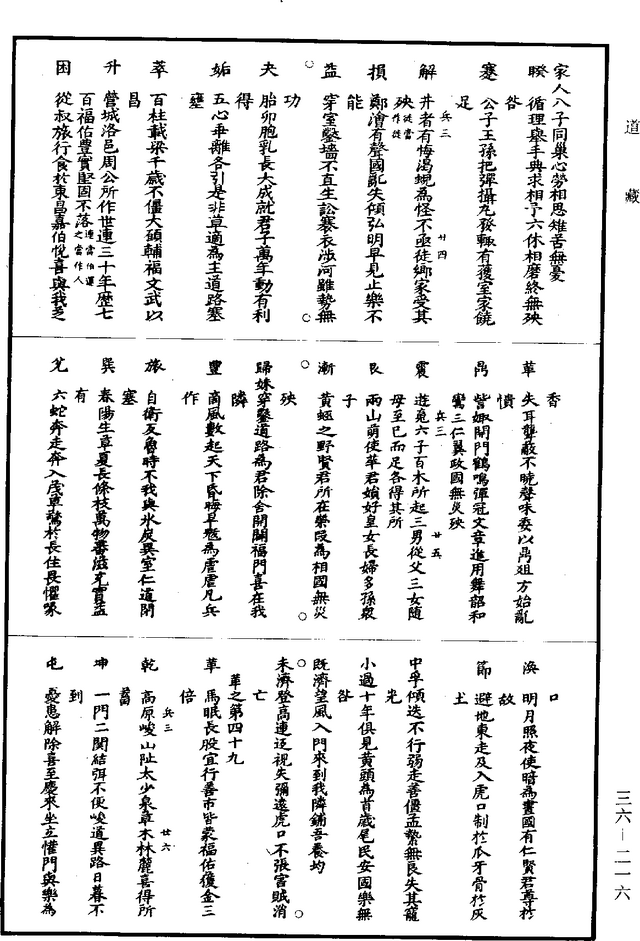 道藏
家人八子同巢心勞相思雖苦無憂
睽循理舉手典求相予六休相磨終無殃
咎
蹇公子王孫把彈攝丸發輒有獲室家饒
足
兵三 廿四
解井者有悔渴蜺為怪不亟徙鄉家受其
殃徙當作從
損鄭濟有聲國亂失傾弘明早見止樂不
能
益穿室鑿墻不直生訟褰衣涉河雖勢無
功
夬胎卵胞乳長大成就君子萬年動有利
得
姤五心乖離各引是非草適為主道路塞
壅
萃百柱載梁千歲不僵大碩輔福文武以
昌
升營城洛邑周公所作世連三十年歷七
百福佑豐實堅固不落
困從叔旅行食於東昌嘉伯悅喜與我芝
香
革失耳聾蔽不曉聲味委以鼎俎方始亂
憒
鼎訾娵開門鶴鳴彈冠文章進用舞韶和
鸞三仁翼政國無災殃
兵三 廿五
震遊鬼六子百木所起三男從父三女隨
母至巳而足各得其所
艮兩山萌使華君媍好皇女長婦多孫眾
子
漸黃蛭之野賢君所在榮段為相國無災
殃
歸妹穿鑿道路為君除舍開闢福門喜在我
隣
豐商風數起天下昏晦旱魃為虐虐凡兵
作
旅自衛反魯時不我與氷炭異室仁道閉
塞
巽春陽生草夏長條枝萬物蕃滋充實益
有
兌六蛇奔走奔入茂草驚於長住畏懼喙
口
渙明月照夜使暗為晝國有仁賢君尊於
故
節避地東走及入虎口制於瓜牙骨於灰
土
中孚傾迭不行弱走善僵孟縶無良失其寵
光
小過十年俱見黃頭為首歲尾民安國樂無
咎
既濟望風入門來到我隣鋪吾養均
未濟登高連迄視失彌遠虎口不張害賊消
亡
革之第四十九
革馬眠長股宜行善市皆蒙福佑獲金三
倍
兵三 廿六
乾高原峻山陸太少泉草木林麓喜得所
蓄
坤一門二關結弭不便峻道異路日暮不
到
屯憂患解除喜至慶來坐立懽門與樂為
三六—二一六